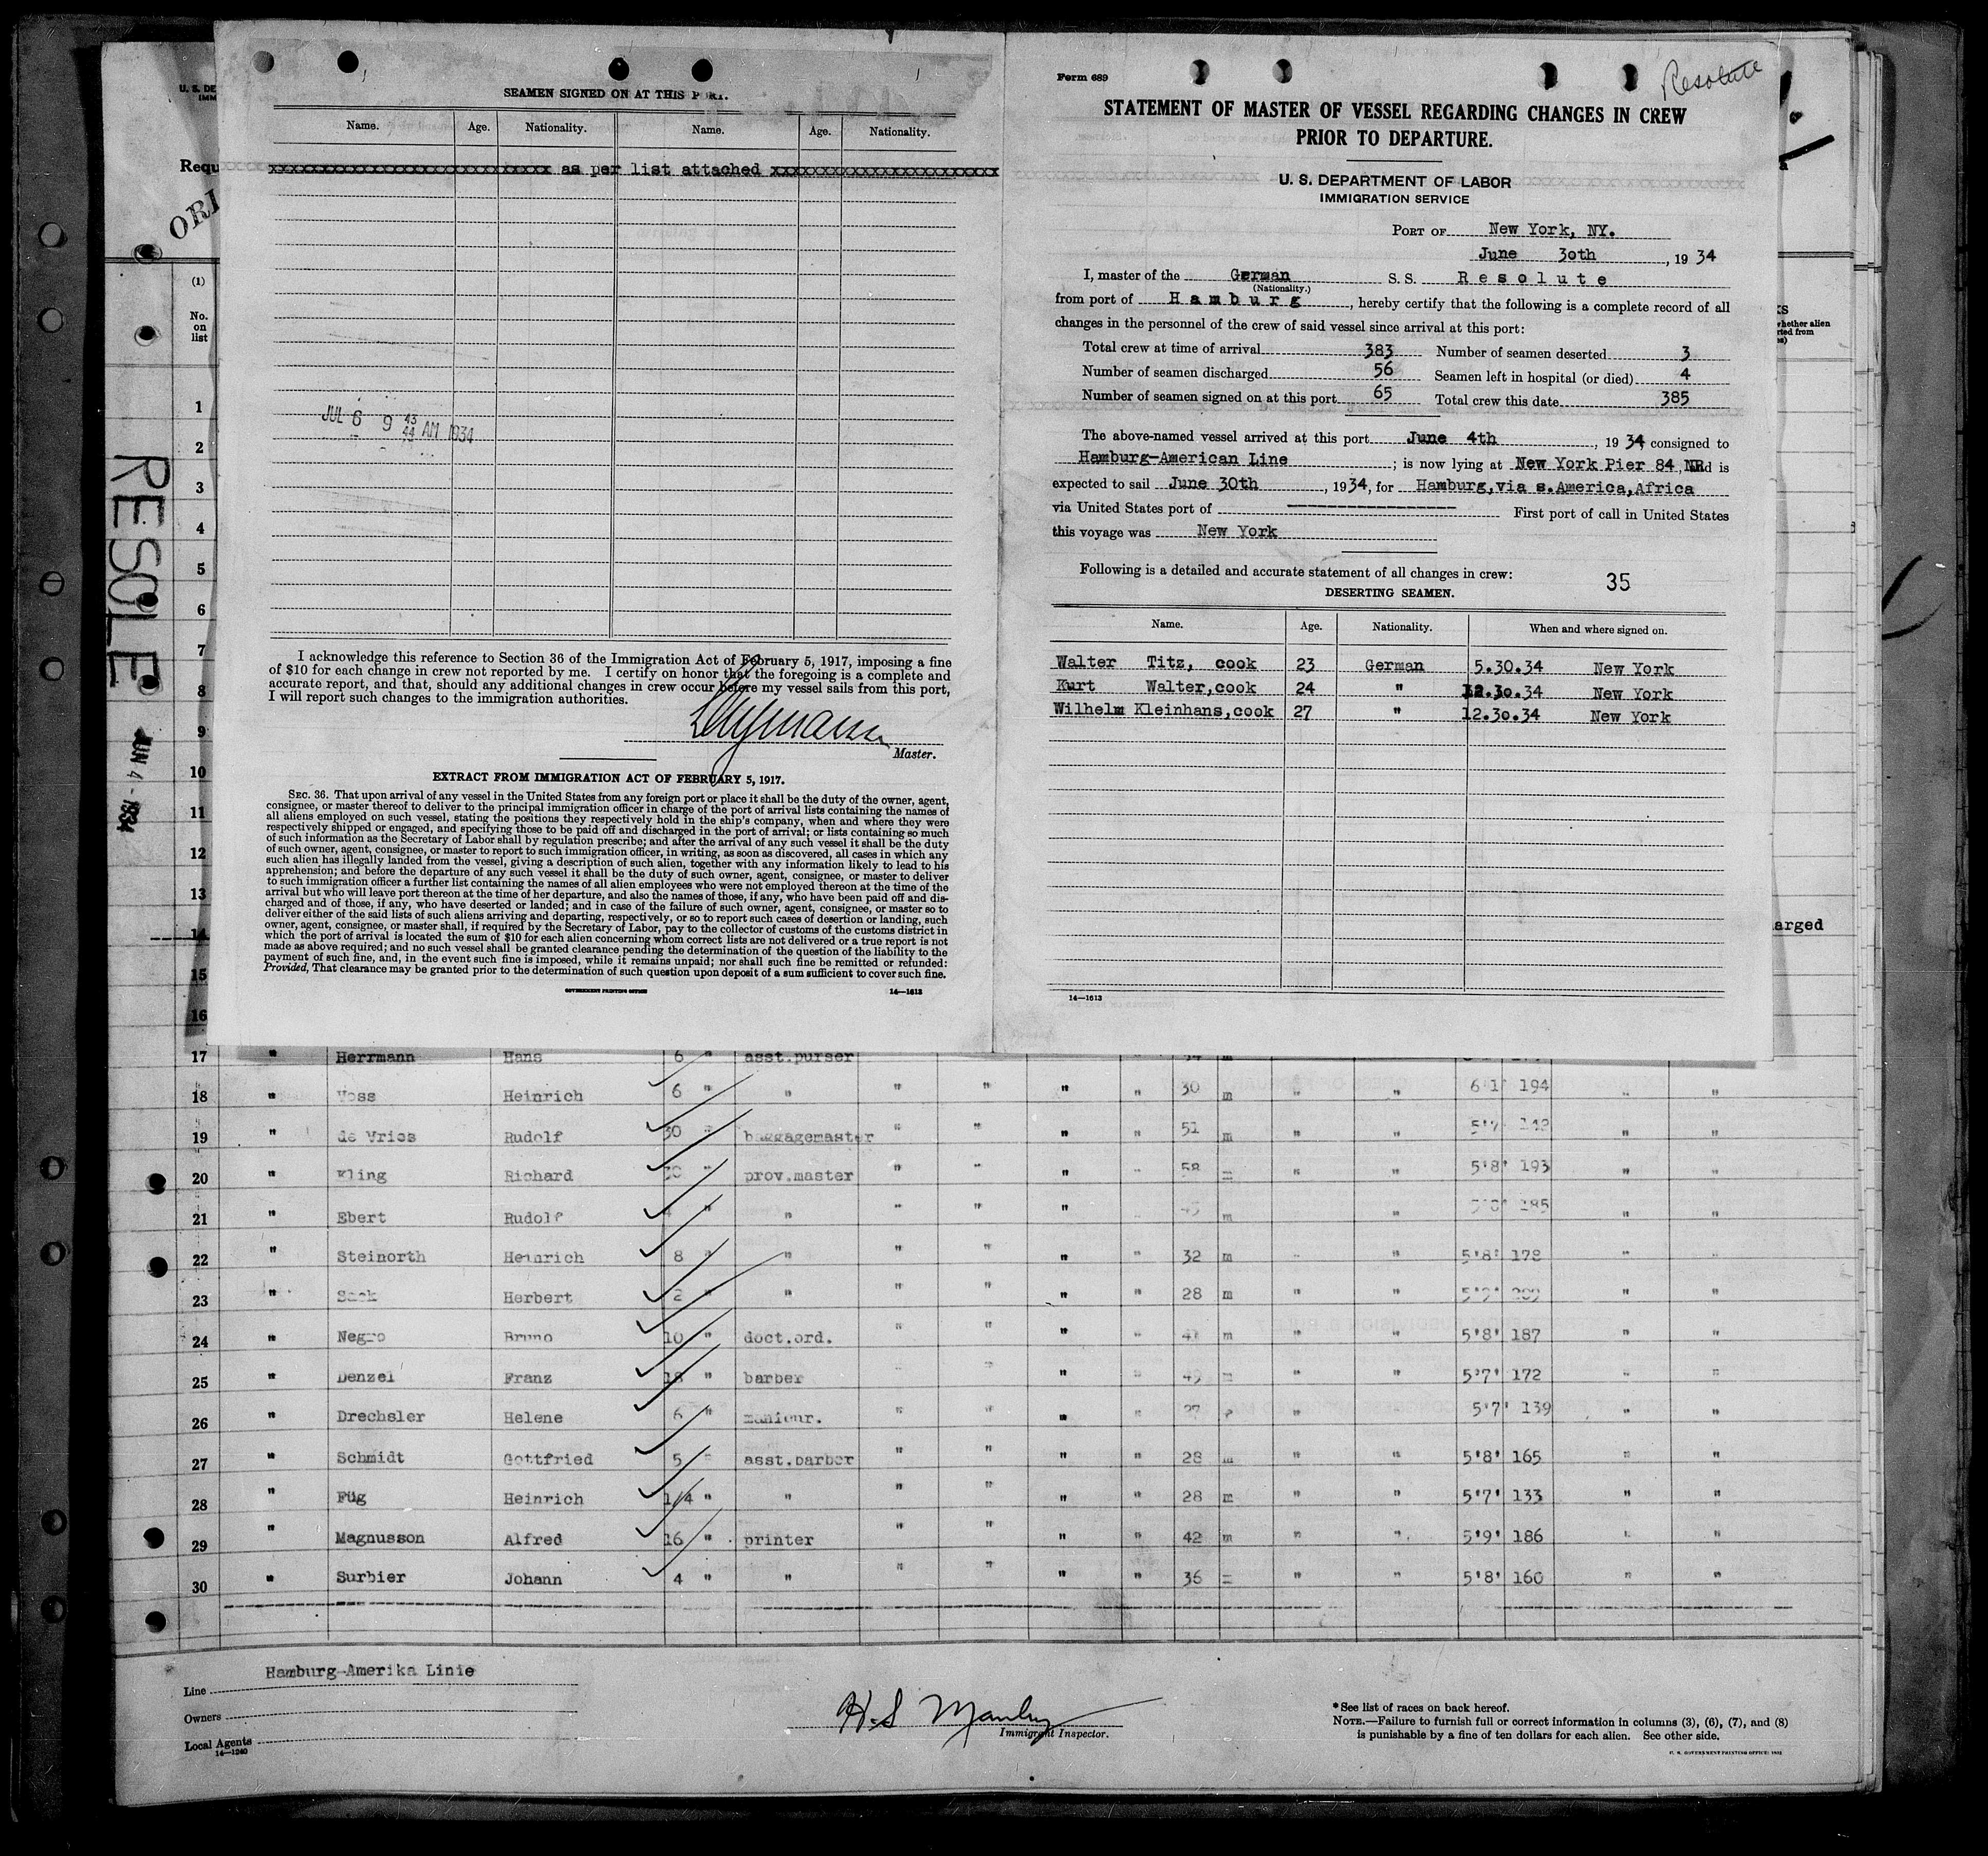 SEAMEN SIGNED ON AT THIS PORT.
Name. Age. Nationality. Name. Age. Nationality.
xxxxxxxxxxxxxxxxxxxxxxxxxxxxx as per list attached xxxxxxxxxxxxxxxxxxxxxxx
JUL 6 9 43 44 AM 1934
I acknowledge this reference to Section 36 of the Immigration Act of February 5, 1917, imposing a fine
of $10 for each change in crew not reported by me. I certify on honor that the foregoing is a complete and
accurate report, and that, should any additional changes in crew occur before my vessel sails from this port,
I will report such changes to the immigration authorities.
Master.
EXTRACT FROM IMMIGRATION ACT OF FEBRUARY 5, 1917.
SEC. 36. That upon arrival of any vessel in the United States from any foreign port or place it shall be the duty of the owner, agent,
consignee, or master thereof to deliver to the principal immigration officer in charge of the port of arrival lists containing the names of
all aliens employed on such vessel, stating the positions they respectively hold in the ship's company, when and where they were
respectively shipped or engaged, and specifying those to be paid off and discharged in the port of arrival; or lists containing so much
of such information as the Secretary of Labor shall by regulation prescribe; and after the arrival of any such vessel it shall be the duty
of such owner, agent, consignee, or master to report to such immigration officer, in writing, as soon as discovered, all cases in which any
such alien has illegally landed from the vessel, giving a description of such alien, together with any information likely to lead to his
apprehension; and before the departure of any such vessel it shall be the duty of such owner, agent, consignee, or master to deliver
to such immigration officer a further list containing the names of all alien employees who were not employed thereon at the time of the
arrival but who will leave port thereon at the time of her departure, and also the names of those, if any, who have been paid off and dis-
charged and of those, if any, who have deserted or landed; and in case of the failure of such owner, agent, consignee, or master so to
deliver either of the said lists of such aliens arriving and departing, respectively, or so to report such cases of desertion or landing, such
owner, agent, consignee, or master shall, if required by the Secretary of Labor, pay to the collector of customs of the customs district in
which the port of arrival is located the sum of $10 for each alien concerning whom correct lists are not delivered or a true report is not
made as above required; and no such vessel shall be granted clearance pending the determination of the question of the liability to the
payment of such fine, and, in the event such fine is imposed, while it remains unpaid; nor shall such fine be remitted or refunded:
Provided, That clearance may be granted prior to the determination of such question upon deposit of a sum sufficient to cover such fine.
GOVERNMENT PRINTING OFFICE 14—1613
Form 689
Resolute
STATEMENT OF MASTER OF VESSEL REGARDING CHANGES IN CREW
PRIOR TO DEPARTURE.
U. S. DEPARTMENT OF LABOR
IMMIGRATION SERVICE
PORT OF New York, NY.
June 30th, 1934
I, master of the German S. S. Resolute
(Nationality.)
from port of Hamburg, hereby certify that the following is a complete record of all
changes in the personnel of the crew of said vessel since arrival at this port:
Total crew at time of arrival 383 Number of seamen deserted 3
Number of seamen discharged 56 Seamen left in hospital (or died) 4
Number of seamen signed on at this port 65 Total crew this date 385
The above-named vessel arrived at this port June 4th, 1934, consigned to
Hamburg-American Line; is now lying at New York Pier 84, NRd is
expected to sail June 30th, 1934, for Hamburg,via s.America,Africa
via United States port of ---------------- First port of call in United States
this voyage was New York
Following is a detailed and accurate statement of all changes in crew:
35
DESERTING SEAMEN.
Name. Age. Nationality. When and where signed on.
Walter Titz, cook 23 German 5.30.34 New York
Kurt Walter,cook 24 " 12.30.34 New York
Wilhelm Kleinhans,cook 27 " 12.30.34 New York
14—1613
U. S. DE
IMM
Requ
ORI
(1)
No.
on
list
whether alien
rted from
RESOLE
JUN 4 - 1934
arged
1
2
3
4
5
6
7
8
9
10
11
12
13
14
15
16
17 " Herrmann Hans 6 " asst.purser
18 " Voss Heinrich 6 " " " " " " 30 m " " 6'1' 194 " "
19 " de Vries Rudolf 30 " baggagemaster " " " " 51 m " " 5'7 142 " "
20 " Kling Richard 30 " prov.master " " " " 58 " " 5'8' 193 " "
21 " Ebert Rudolf 4 " " " " " 45 m " 185 " "
22 " Steinorth Heinrich 8 " " " " " " 32 m " " 5'8' 178 " "
23 " Sack Herbert 2 " " " " " " 28 m " " 5'9' 209 " "
24 " Negro Bruno 10 " doct.ord. " " " " 41 m " " 5'8' 187 " "
25 " Denzel Franz 18 " barber " " " " 49 " " 5'7' 172 " "
26 " Drechsler Helene 6 " manicur. " " " " 27 " " 5'7' 139 " "
27 " Schmidt Gottfried 5 " asst.barber " " " " 28 m " " 5'8' 165 " "
28 " Füg Heinrich 1/4 " " " " " " 28 m " " 5'7' 133 " "
29 " Magnusson Alfred 16 " printer " " " " 42 m " " 5'9' 186 " "
30 " Surbier Johann 4 " " " " " " 36 " " 5'8' 160 " "
Line Hamburg-Amerika Linie
Owners
Local Agents
14—1240
H. S Manley
Immigrant Inspector.
*See list of races on back hereof.
NOTE.—Failure to furnish full or correct information in columns (3), (6), (7), and (8)
is punishable by a fine of ten dollars for each alien. See other side.